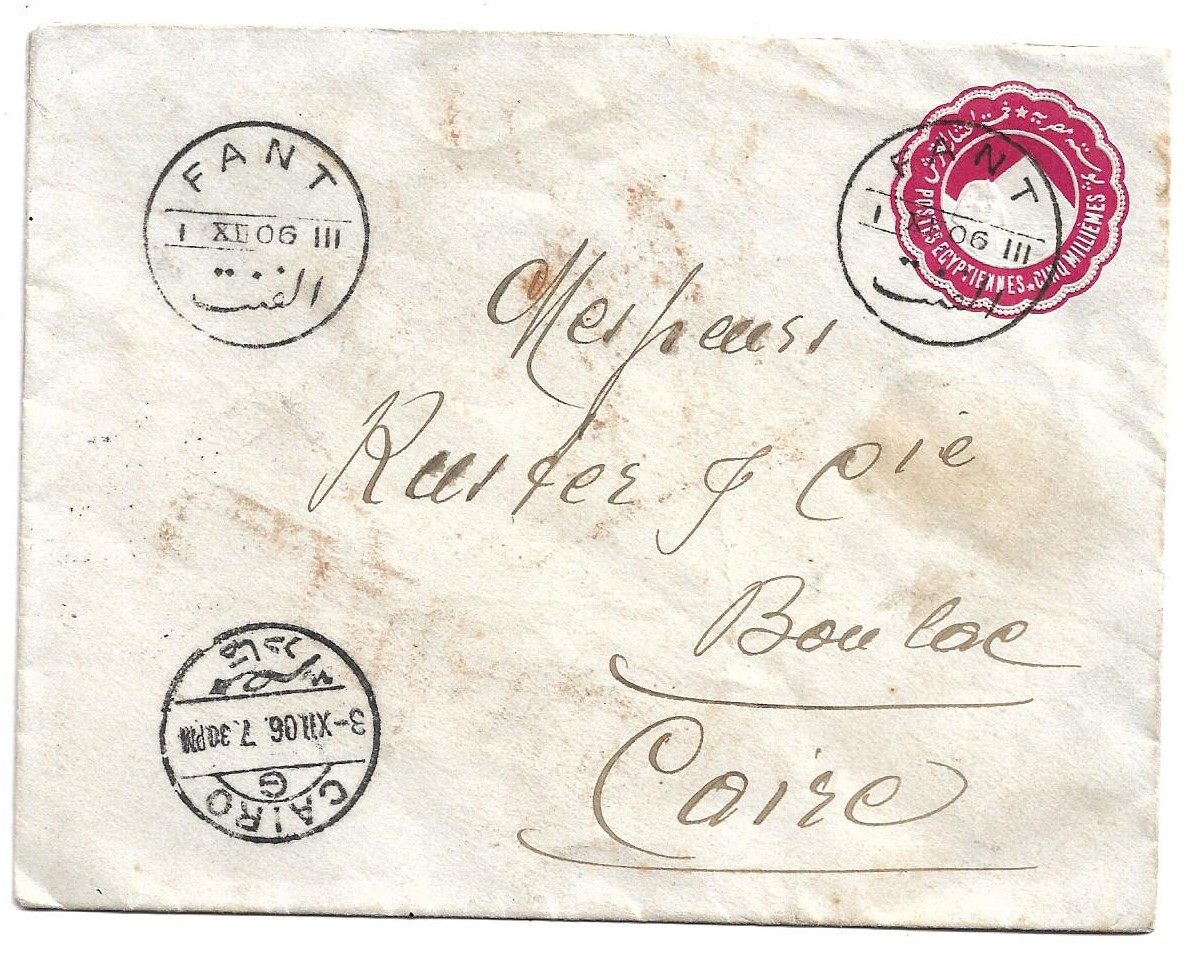 FANT
1 XII 06 III
الفنت
FANT
- XII 06 III
الفنت
POSTES EGYPTIENNES ★ CINQ MILLIÈMES
Messieurs
Ruster & Cie
Boulac
Caire
CAIRO
G
3-XII.06. 7.30PM